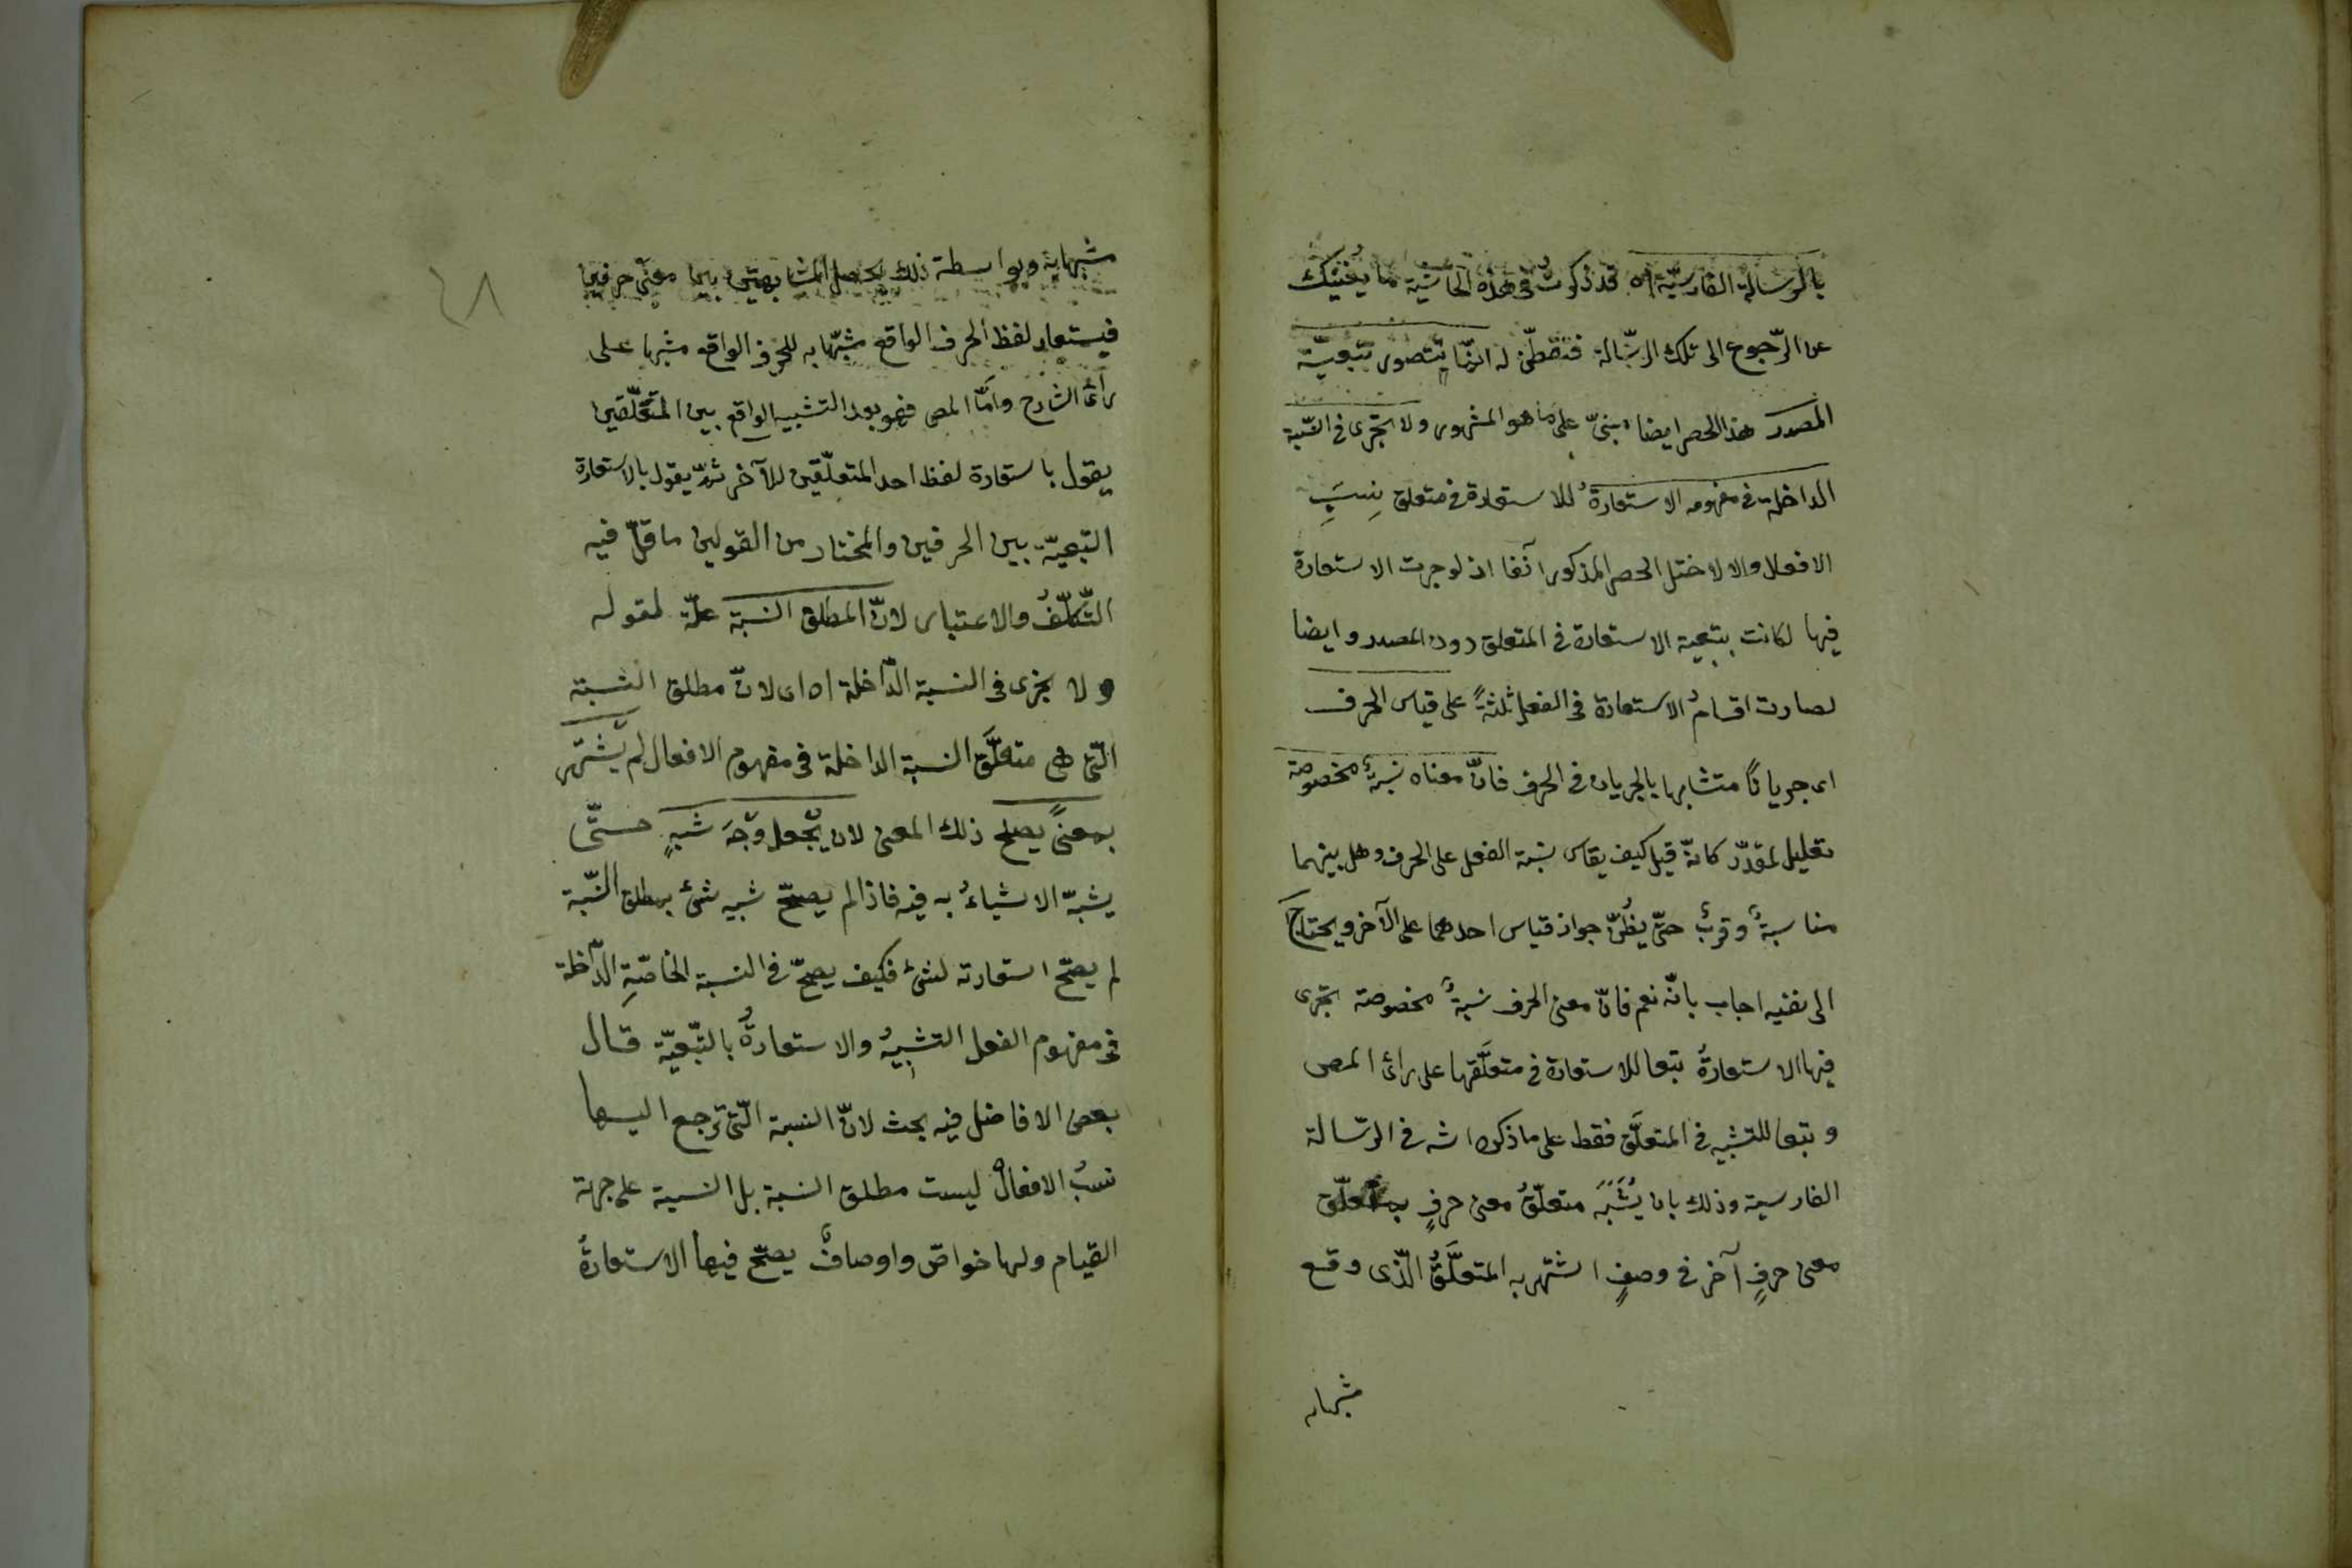 بالرسالة الفارسيّة اه قد ذكرتُ فى هذه الحاشية ما يُغْنيك
عن الرّجوع الى تلك الرسّالة فتفطّن له انّما يُتصور بتبعيّة
المصدر هذا الحصر ايضا مبنىّ على ما هو المشهور ولا تجرى فى النسّبة
الداخلة فى مفهومه الاستعارةُ للاستعارة فى متعلق نِسَبِ
الافعال والا لاختل الحصر المذكور آنفا اذ لو جرت الاستعارة
فيها لكانت بتبعية الاستعارة فى المتعلق دون المصدر وايضا
لصارت اقسامُ الاستعارة فى الفعل ثلثةً على قياس الحرف
اى جريانًا متشابها بالجريان فى الحرف فانّ معناه نسبةٌ مخصوصة
تعليل لمقدّر كانّه قيل كيف يقاس نسبة الفعل على الحرف وهل بينهما
مناسبةٌ وقربٌ حتّى يظُنّ جواز قياس احدهما على الآخر ويحتاج
الى نفيه اجاب بانّه نعم فانّ معنى الحرف نسبةٌ مخصوصة تجرى
فيها الاستعارةُ تبعا للاستعارة فى متعلَّقها على رأى المص
وتبعا للتشبيه فى المتعلَّق فقط على ما ذكره الشه فى الرسّالة
الفارسية وذلك بان يُشَبَّه متعلَّقُ معنى حرفٍ بمتعلّق
معنى حرفٍ آخر فى وصفٍ اشتهر به المتعلَّقُ الّذى وقع
مشبها به
٤٨
مشبها به وبواسطة ذلك يحصل المشابهة بين معنى حرفين
فيستعار لفظ الحرف الواقع مشبّها به للحرف الواقع مشبها على
رأى الشارح وامّا المص فهو بعد التشبيه الواقع بين المتعلّقين
يقول باستعارة لفظ احد المتعلّقين للآخر ثمّ يقول بالاستعارة
التبعيّة بين الحرفين والمختار من القولين ما قلّ فيه
التّكلّفُ والاعتبار لانّ المطلق النسبة علّة لقوله
ولا تجرى فى النسبة الدّاخلة اه اى لانّ مطلق النسبة
الّتى هى متعلَّق النسبة الداخلة فى مفهوم الافعال لم يشتهر
بمعنىً يصلح ذلك المعنى لان يُجعل وجهَ شبهٍ حتّى
يشبّه الاشياءُ به فيه فاذا لم يصحّ شبيه شئ بمطلق النسّبة
لم يصحّ استعارته لشئ فكيف يصحّ فى النسبة الخاصّةِ الدّاخلة
فى مفهوم الفعل التشبيهُ والاستعارةُ بالتّبعيّة قال
بعض الافاضل فيه بحث لانّ النسبة الّتى ترجع اليها
نسبُ الافعال ليست مطلق النسبة بل النسبة على جهة
القيام ولها خواصّ واوصافٌ يصحّ فيها الاستعارةُ